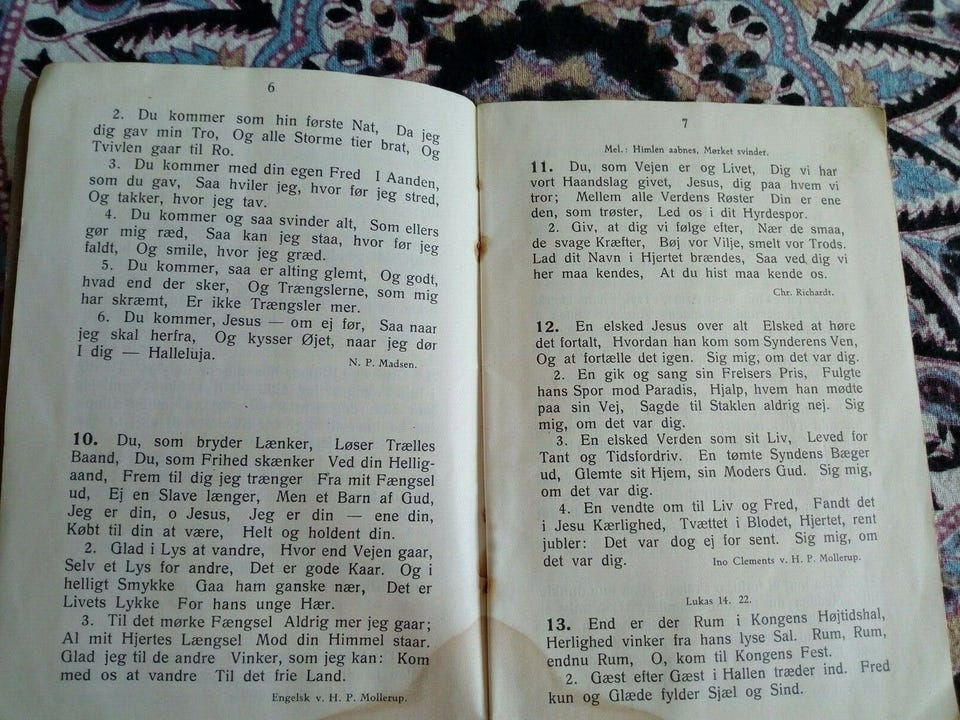 6
2. Du kommer som hin første Nat, Da jeg
dig gav min Tro, Og alle Storme tier brat, Og
Tvivlen gaar til Ro.
3. Du kommer med din egen Fred I Aanden,
som du gav, Saa hviler jeg, hvor før jeg stred,
Og takker, hvor jeg tav.
4. Du kommer og saa svinder alt, Som ellers
gør mig ræd, Saa kan jeg staa, hvor før jeg
faldt, Og smile, hvor jeg græd.
5. Du kommer, saa er alting glemt, Og godt,
hvad end der sker, Og Trængslerne, som mig
har skræmt, Er ikke Trængsler mer.
6. Du kommer, Jesus — om ej før, Saa naar
jeg skal herfra, Og kysser Øjet, naar jeg dør
I dig — Halleluja.
N. P. Madsen.
10. Du, som bryder Lænker, Løser Trælles
Baand, Du, som Frihed skænker Ved din Hellig-
aand, Frem til dig jeg trænger Fra mit Fængsel
ud, Ej en Slave længer, Men et Barn af Gud,
Jeg er din, o Jesus, Jeg er din — ene din,
Købt til din at være, Helt og holdent din.
2. Glad i Lys at vandre, Hvor end Vejen gaar,
Selv et Lys for andre, Det er gode Kaar. Og i
helligt Smykke Gaa ham ganske nær, Det er
Livets Lykke For hans unge Hær.
3. Til det mørke Fængsel Aldrig mer jeg gaar;
Al mit Hjertes Længsel Mod din Himmel staar.
Glad jeg til de andre Vinker, som jeg kan: Kom
med os at vandre Til det frie Land.
Engelsk v. H. P. Mollerup.
7
Mel.: Himlen aabnes, Mørket svinder.
11. Du, som Vejen er og Livet, Dig vi har
vort Haandslag givet, Jesus, dig paa hvem vi
tror; Mellem alle Verdens Røster Din er ene
den, som trøster, Led os i dit Hyrdespor.
2. Giv, at dig vi følge efter, Nær de smaa,
de svage Kræfter, Bøj vor Vilje, smelt vor Trods.
Lad dit Navn i Hjertet brændes, Saa ved dig vi
her maa kendes, At du hist maa kende os.
Chr. Richardt.
12. En elsked Jesus over alt Elsked at høre
det fortalt, Hvordan han kom som Synderens Ven,
Og at fortælle det igen. Sig mig, om det var dig.
2. En gik og sang sin Frelsers Pris, Fulgte
hans Spor mod Paradis, Hjalp, hvem han mødte
paa sin Vej, Sagde til Staklen aldrig nej. Sig
mig, om det var dig.
3. En elsked Verden som sit Liv, Leved for
Tant og Tidsfordriv. En tømte Syndens Bæger
ud, Glemte sit Hjem, sin Moders Gud. Sig mig,
om det var dig.
4. En vendte om til Liv og Fred, Fandt det
i Jesu Kærlighed, Tvættet i Blodet, Hjertet, rent
jubler: Det var dog ej for sent. Sig mig, om
det var dig.
Ino Clements v. H. P. Mollerup.
Lukas 14. 22.
13. End er der Rum i Kongens Højtidshal,
Herlighed vinker fra hans lyse Sal. Rum, Rum,
endnu Rum, O, kom til Kongens Fest.
2. Gæst efter Gæst i Hallen træder ind. Fred
kun og Glæde fylder Sjæl og Sind.